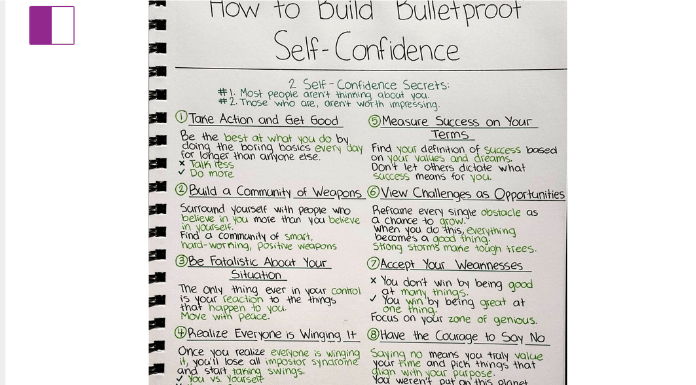 How to Build Bulletproof
Self-Confidence
2 Self-Confidence Secrets:
#1. Most people aren't thinking about you.
#2. Those who are, aren't worth impressing.
① Take Action and Get Good
Be the best at what you do by
doing the boring basics every day
for longer than anyone else.
× Talk less
✓ Do more
② Build a Community of Weapons
Surround yourself with people who
believe in you more than you believe
in yourself.
Find a community of smart,
hard-working, positive weapons
③ Be Fatalistic About Your
Situation
The only thing ever in your control
is your reaction to the things
that happen to you.
Move with peace.
④ Realize Everyone is Winging It
Once you realize everyone is winging
it, you'll lose all impostor syndrome
and start taking swings.
✓ You vs. Yourself
⑤ Measure Success on Your
Terms
Find your definition of success based
on your values and dreams.
Don't let others dictate what
success means for you.
⑥ View Challenges as Opportunities
Reframe every single obstacle as
a chance to grow.
When you do this, everything
becomes a good thing.
Strong storms make tough trees.
⑦ Accept Your Weaknesses
× You don't win by being good
at many things.
✓ You win by being great at
one thing.
Focus on your zone of genious.
⑧ Have the Courage to Say No
Saying no means you truly value
your time and pick things that
align with your purpose.
You weren't put on this planet